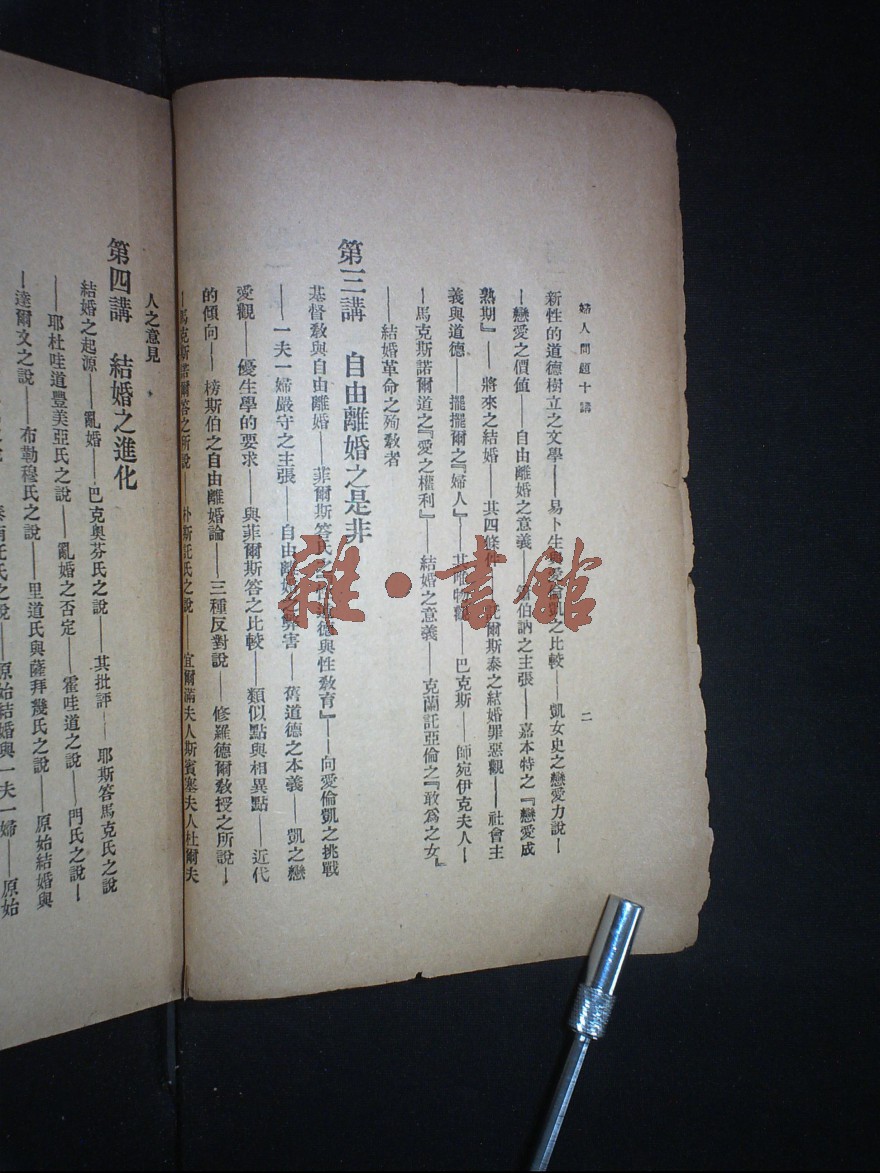 婦人問題十講
二
新性的道德樹立之文學——易卜生與愛倫凱之比較——凱女史之戀愛力說—
—戀愛之價值——自由離婚之意義——伯訥之主張——嘉本特之『戀愛成
熟期』——將來之結婚——其四條件——托爾斯泰之結婚罪惡觀——社會主
義與道德——擺擺爾之『婦人』——其唯物觀——巴克斯——師宛伊克夫人—
—馬克斯諾爾道之『愛之權利』——結婚之意義——克蘭託亞倫之『敢爲之女』
——結婚革命之殉教者
第三講 自由離婚之是非
基督教與自由離婚——菲爾斯答氏之『性道德與性教育』——向愛倫凱之挑戰
——一夫一婦嚴守之主張——自由離婚之弊害——舊道德之本義——凱之戀
愛觀——優生學的要求——與菲爾斯答之比較——類似點與相異點——近代
的傾向——榜斯伯之自由離婚論——三種反對說——修羅德爾教授之所說—
—馬克斯諾爾答之所說——朴斯託氏之說——宜爾滿夫人斯賓塞夫人杜爾夫
人之意見
第四講 結婚之進化
結婚之起源——亂婚——巴克奧芬氏之說——其批評——耶斯答馬克氏之說
——耶杜哇道豐美亞氏之說——亂婚之否定——霍哇道之說——門氏之說—
—達爾文之說——布勒穆氏之說——里道氏與薩拜幾氏之說——原始結婚與
泰南託氏之說——原始結婚與一夫一婦——原始
雜·書館